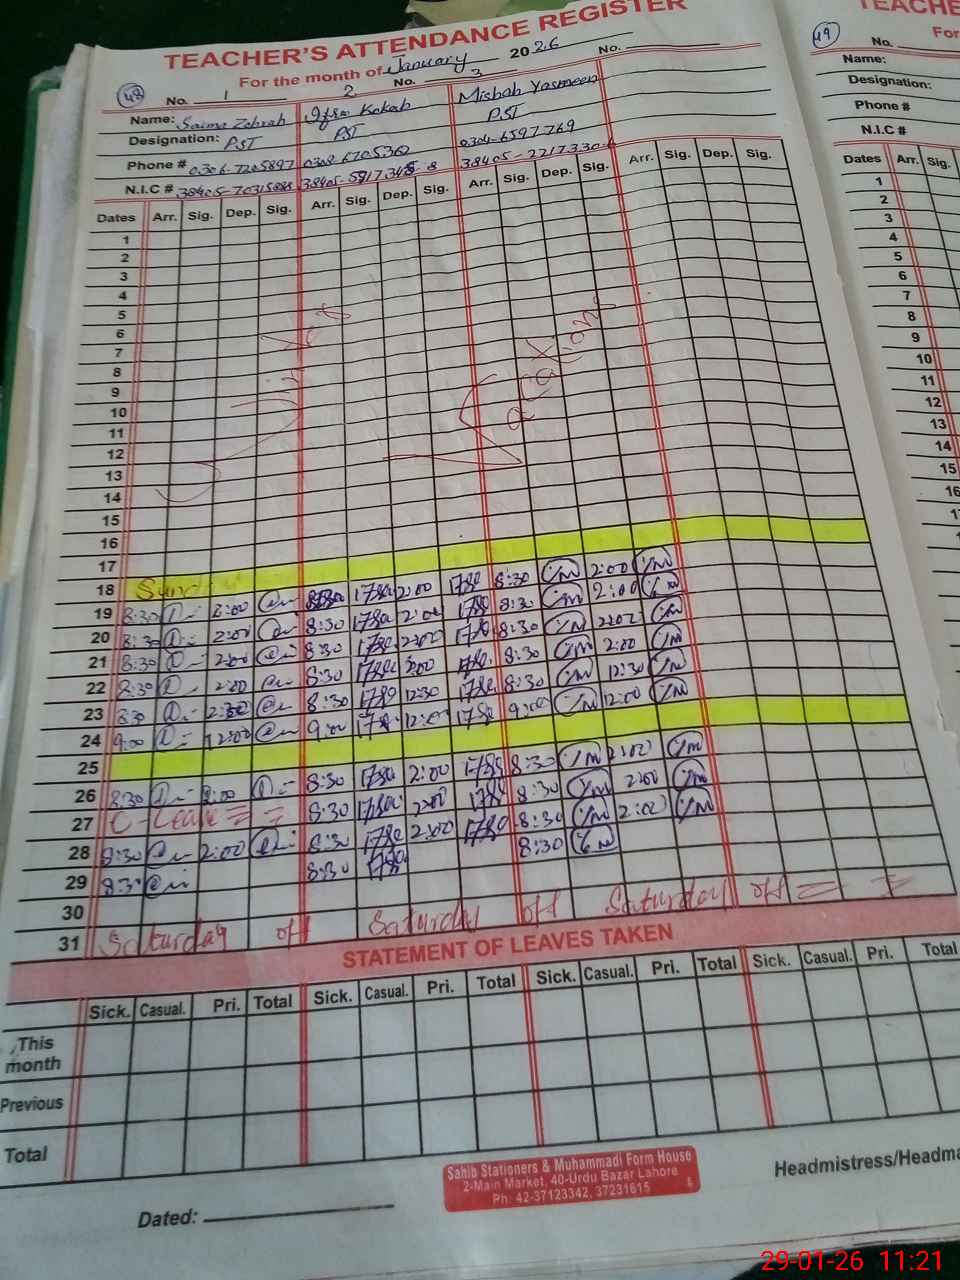 TEACHER'S ATTENDANCE REGISTER
For the month of January 2026
48
No. 1 No. 2 No. 3 No.
Name: Saima Zehrah Ifra Kokab Mishab Yasmeen
Designation: PST PST PST
Phone # 0306-7205897 0304-6597769
N.I.C #
Dates Arr. Sig. Dep. Sig. Arr. Sig. Dep. Sig. Arr. Sig. Dep. Sig. Arr. Sig. Dep. Sig.
1
2
3
4
5
6
7
8
9
10
11
12
13
14
15
16
17
Winter Vacations
18 Sunday
19 8:30 2:00 8:30 2:00 8:30 2:00
20 8:30 2:00 8:30 2:00 8:30 2:00
21 8:30 2:00 8:30 2:00 8:30 2:00
22 8:30 2:00 8:30 2:00 8:30 2:00
23 8:30 8:30 12:30 8:30 12:30
24 9:00 12:00 9:00 12:00 9:00 12:00
25
26 8:30 2:00 8:30 2:00 8:30 2:00
27 C-Leave 8:30 2:00 8:30 2:00
28 8:30 2:00 8:30 2:00 8:30 2:00
29 8:30 8:30 8:30
30
31 Saturday off Saturday off Saturday off
STATEMENT OF LEAVES TAKEN
Sick. Casual. Pri. Total Sick. Casual. Pri. Total Sick. Casual. Pri. Total Sick. Casual. Pri. Total
This month
Previous
Total
Sahib Stationers & Muhammadi Form House
2-Main Market, 40-Urdu Bazar Lahore
Ph: 42-37123342, 37231615
Dated:
Headmistress/Headma
49
TEACHE
For
No.
Name:
Designation:
Phone #
N.I.C #
Dates Arr. Sig.
1
2
3
4
5
6
7
8
9
10
11
12
13
14
15
16
29-01-26 11:21